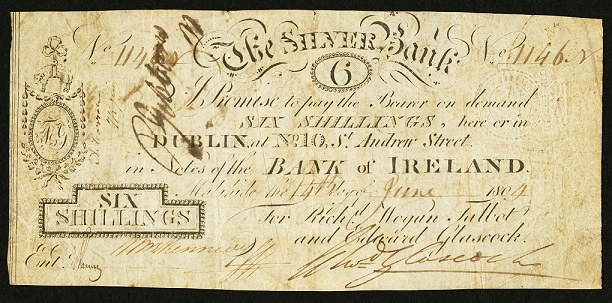 No. 1146 The SILVER Bank No. 1146
6
I Promise to pay the Bearer on demand
SIX SHILLINGS, here or in
DUBLIN, at No. 10, St. Andrew Street.
in Notes of the BANK of IRELAND.
Malahide the 14th of June 180
SIX
SHILLINGS
For Richd. Wogan Talbot
and Edward Glascock.
Entd.
Edwd. Glascock